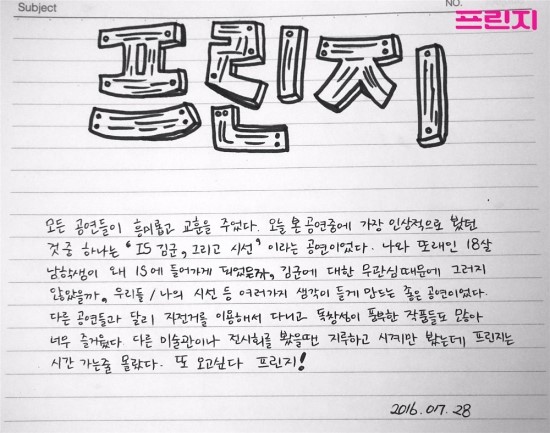 Subject
NO.
프린지
프린지
모든 공연들이 흥미롭고 교훈을 주었다. 오늘 본 공연중에 가장 인상적으로 봤던
것 중 하나는 "IS 김군, 그리고 시선" 이라는 공연이었다. 나와 또래인 18살
남학생이 왜 IS에 들어가게 되었을까, 김군에 대한 무관심 때문에 그러지
않았을까, 우리들 / 나의 시선 등 여러가지 생각이 들게 만드는 좋은 공연이었다.
다른 공연들과 달리 자전거를 이용해서 다니고 독창성이 풍부한 작품들도 많아
너무 즐거웠다. 다른 미술관이나 전시회를 봤을땐 지루하고 시계만 봤는데 프린지는
시간 가는줄 몰랐다. 또 오고싶다 프린지!
2016. 07. 28